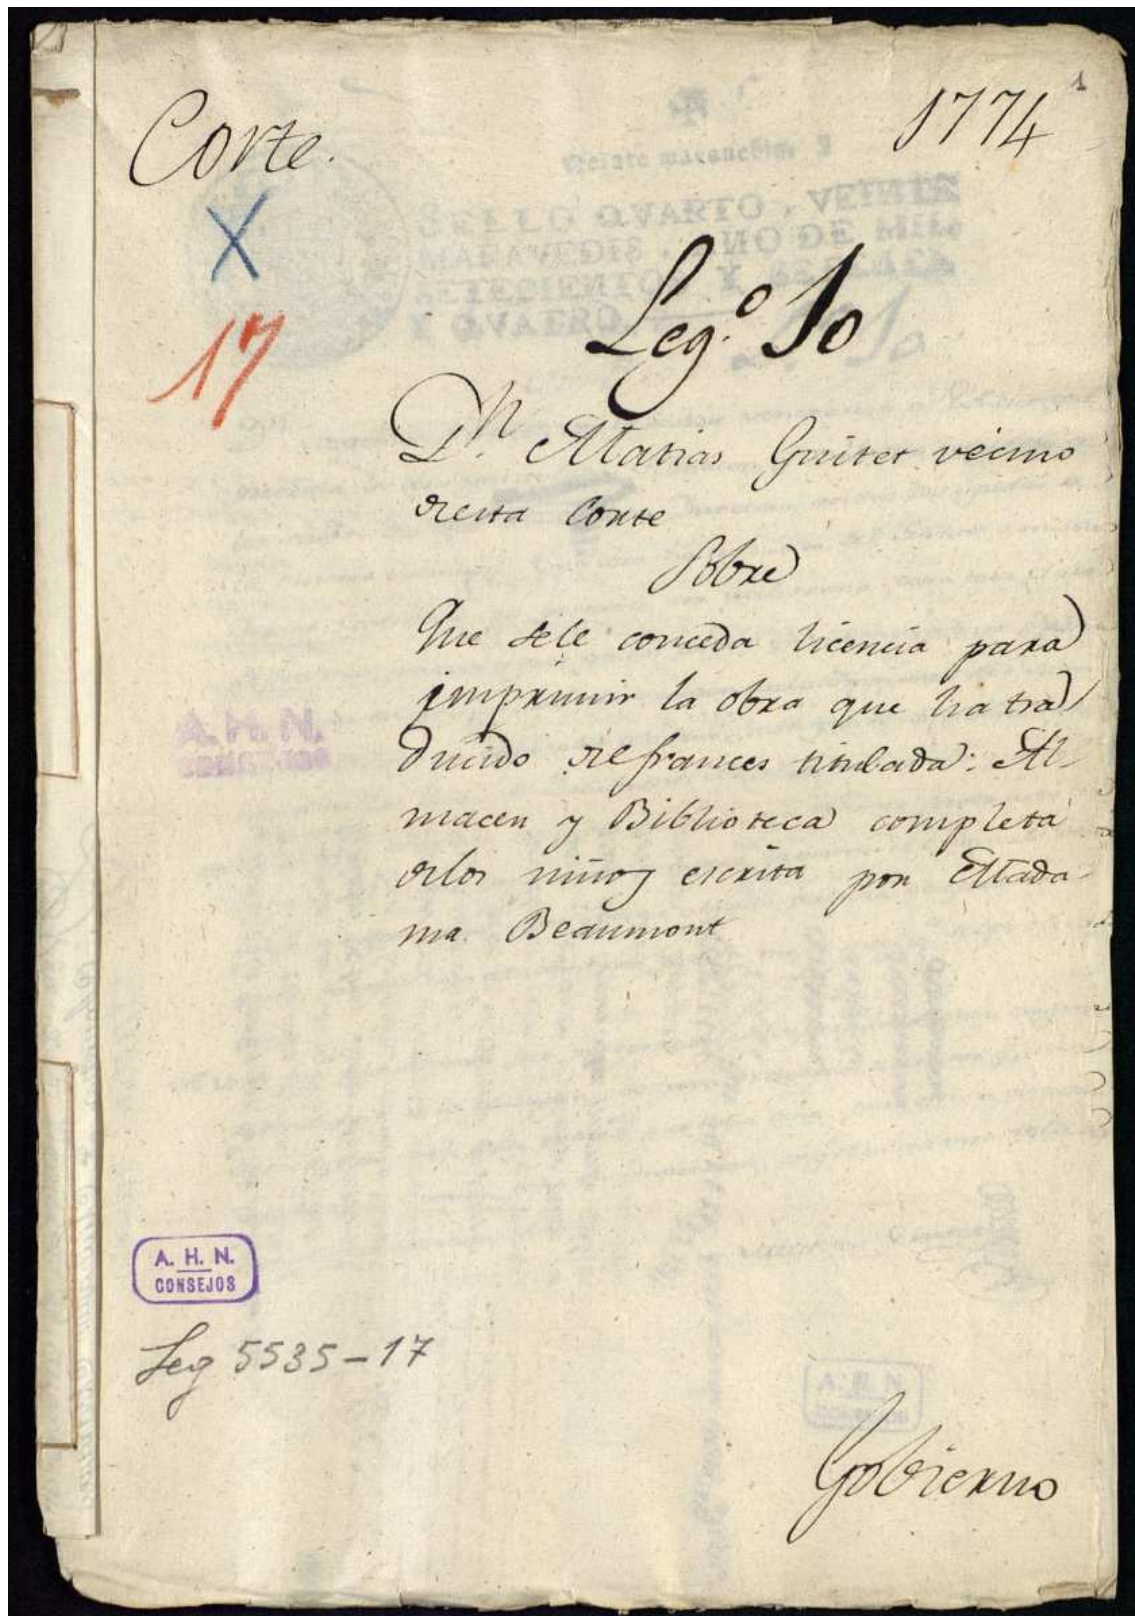 1
Corte.
1774
X
17
Leg.º 10
D.n Matias Guitet vecino
desta Corte
Sobre
Que sele conceda licencia para
imprimir la obra que ha tra
ducido del frances titulada: Al-
macen y Biblioteca completa
delos niños escrita por Mada-
ma Beaumont
A. H. N.
CONSEJOS
Leg 5535-17
Gobierno